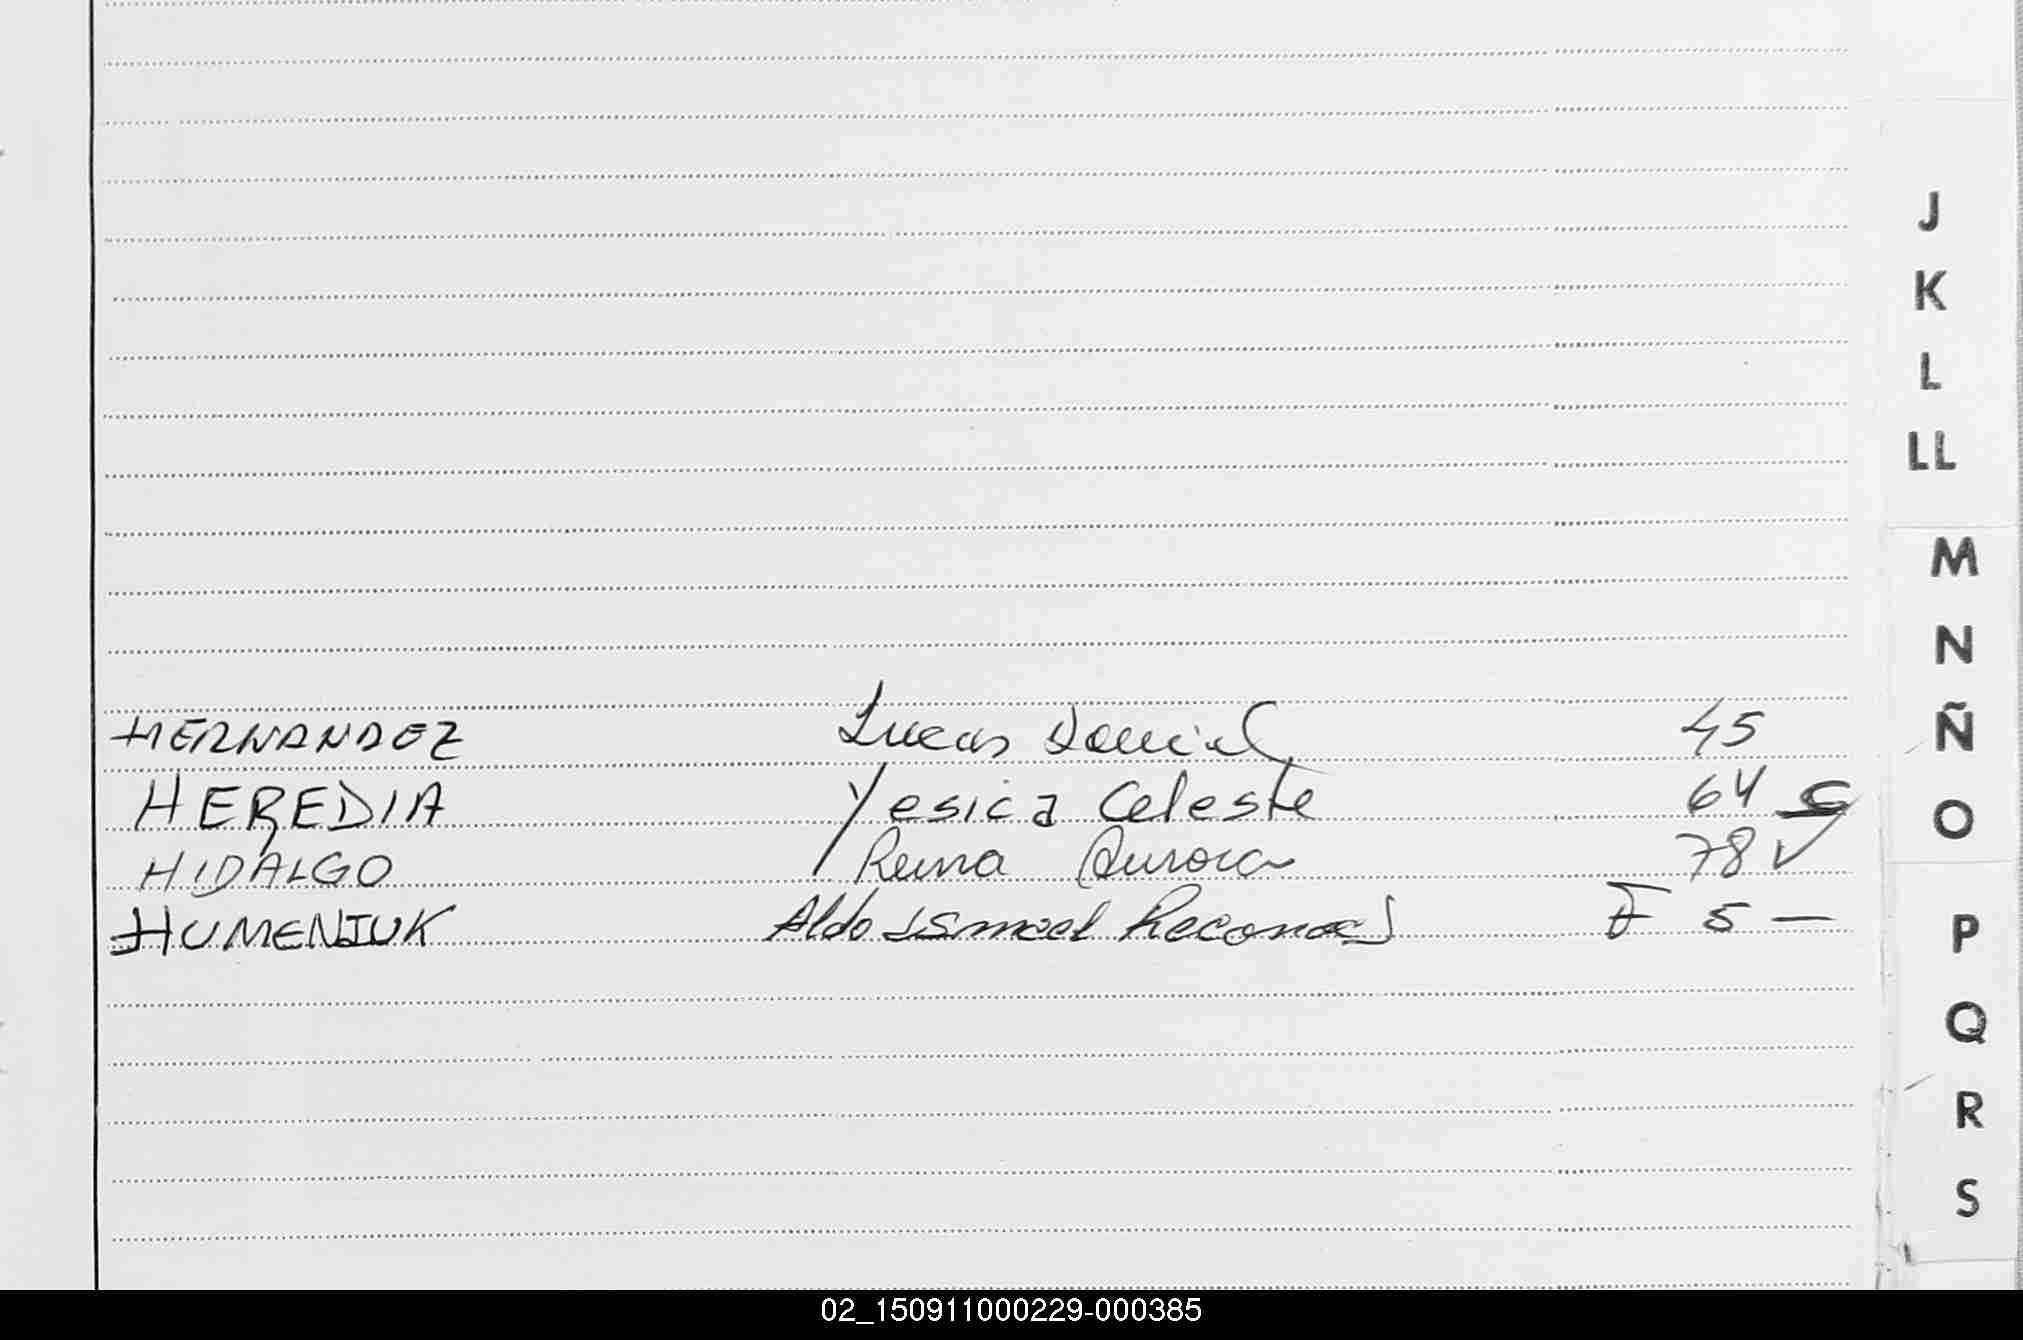 HERNANDEZ Lucas Daniel 45
HEREDIA Yesica Celeste 64 C
HIDALGO Reina Aurora 78 ✓
HUMENIUK Aldo Ismael F 5 —
J
K
L
LL
M
N
Ñ
O
P
Q
R
S
02_150911000229-000385